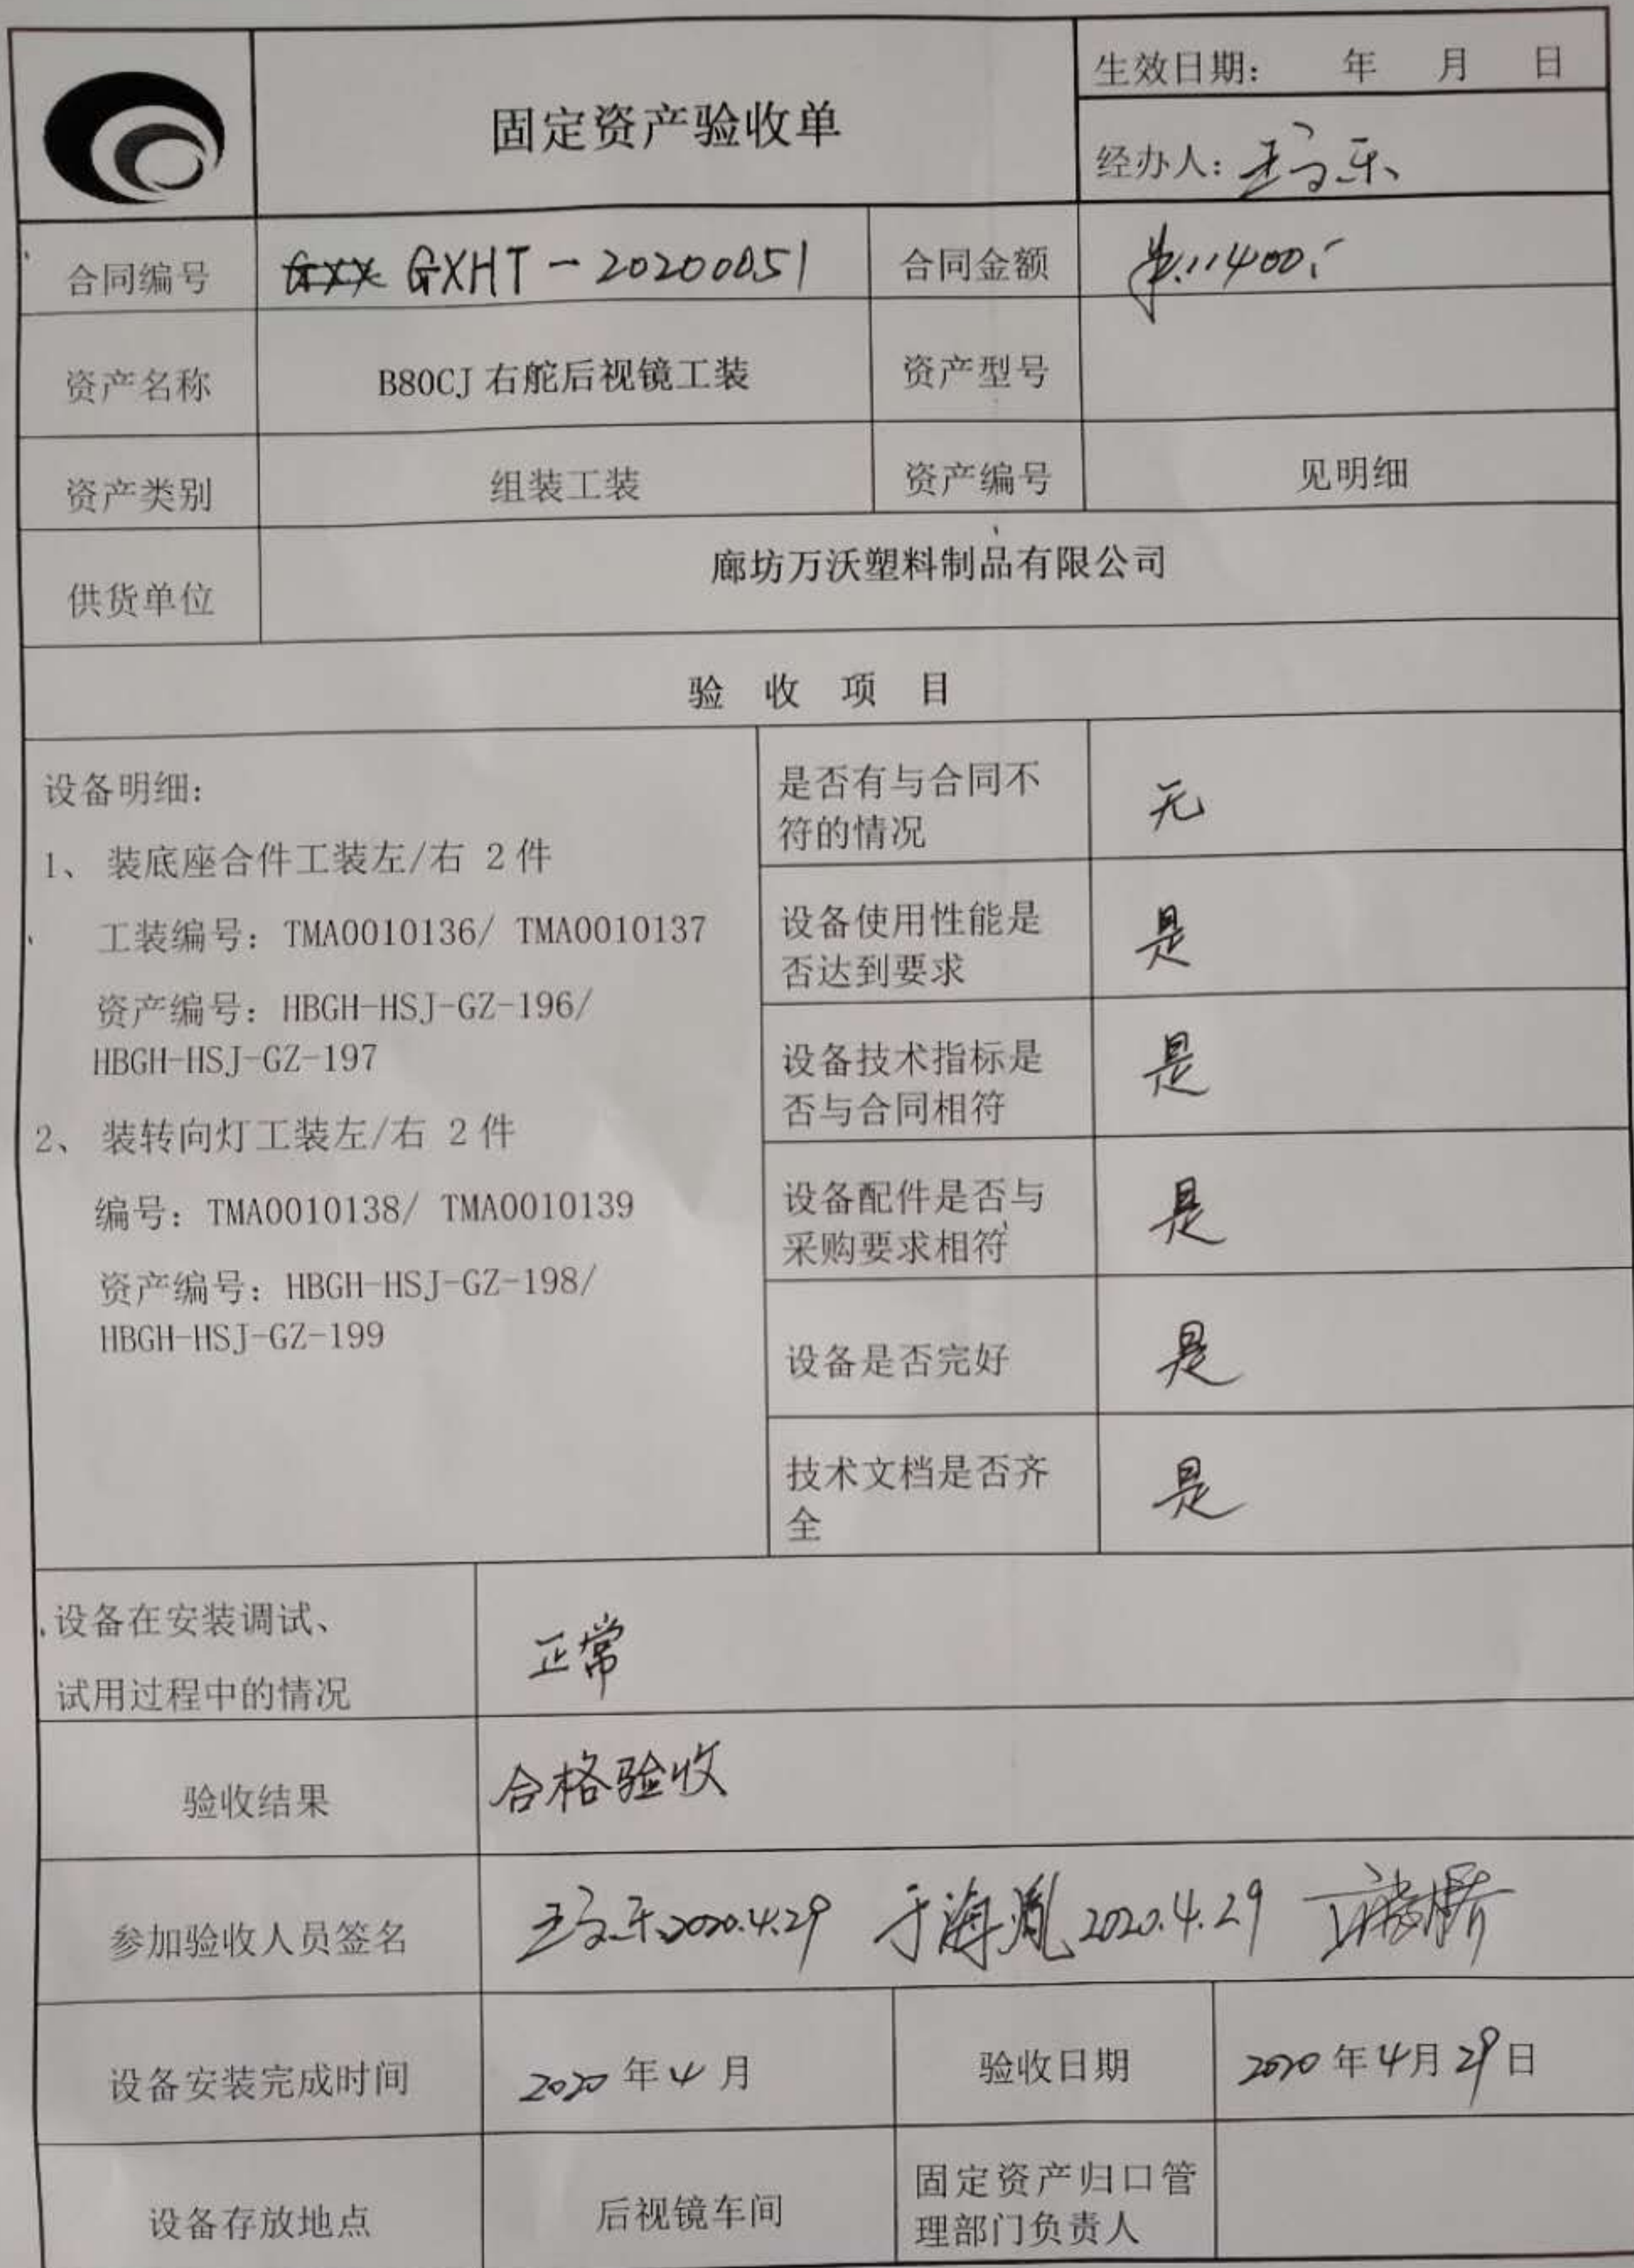 固定资产验收单
生效日期： 年 月 日
经办人：
合同编号 GXHT-20200051 合同金额 11400.-
资产名称 B80CJ 右舵后视镜工装 资产型号
资产类别 组装工装 资产编号 见明细
供货单位 廊坊万沃塑料制品有限公司
验 收 项 目
设备明细：
1、 装底座合件工装左/右 2 件
工装编号：TMA0010136/ TMA0010137
资产编号：HBGH-HSJ-GZ-196/
HBGH-HSJ-GZ-197
2、 装转向灯工装左/右 2 件
编号：TMA0010138/ TMA0010139
资产编号：HBGH-HSJ-GZ-198/
HBGH-HSJ-GZ-199
是否有与合同不
符的情况
无
设备使用性能是
否达到要求
是
设备技术指标是
否与合同相符
是
设备配件是否与
采购要求相符
是
设备是否完好 是
技术文档是否齐
全
是
设备在安装调试、
试用过程中的情况
正常
验收结果 合格验收
参加验收人员签名 2020.4.29 于海胤 2020.4.29
设备安装完成时间 2020 年 4 月 验收日期 2020 年 4 月 29 日
设备存放地点 后视镜车间
固定资产归口管
理部门负责人